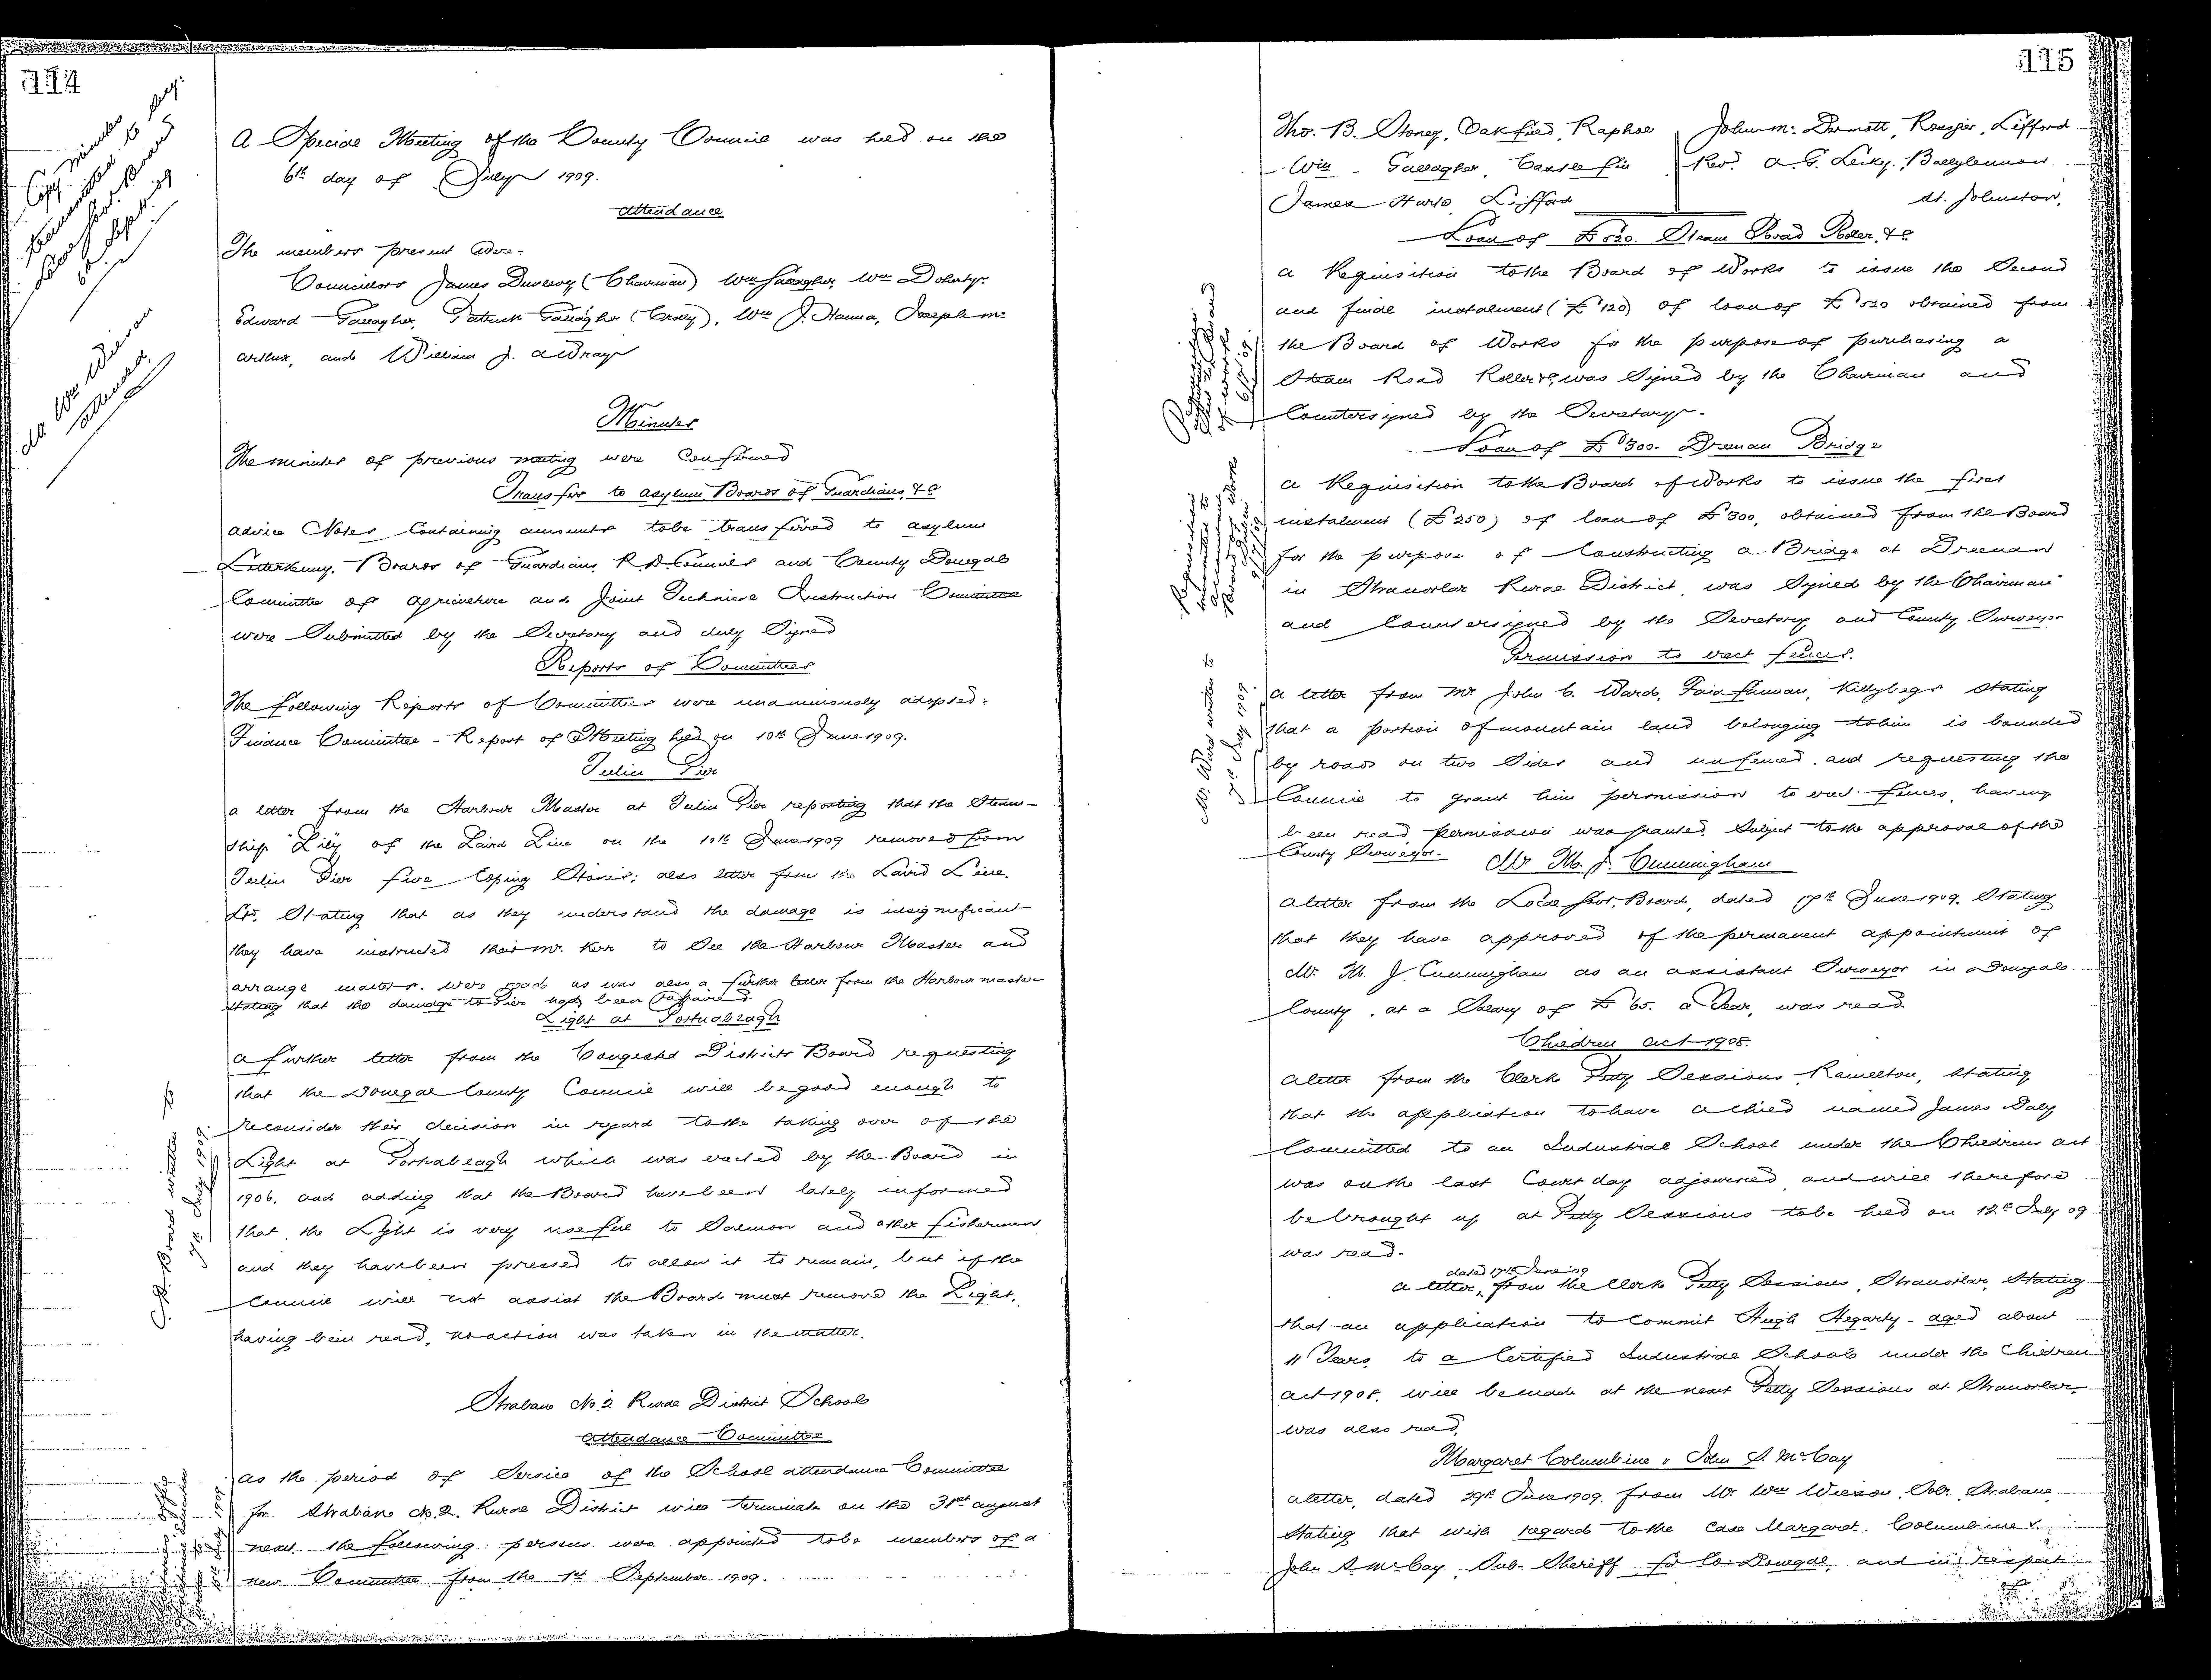 114
Copy minutes
A Special Meeting of the County Council was held on the
6th day of July 1909.
Attendance
The members present were:-
Councillors James Dunlevy (Chairman) Wm Gallagher, Wm Doherty,
Edward Gallagher, Patrick Gallagher (Crolly), Wm J. Hanna, Joseph Mc
Arthur, and William J. A Wray
Minutes
The minutes of previous meeting were Confirmed
Transfer to Asylum Boards of Guardians, &c
Advice Notes Containing amounts to be transferred to Asylum
Letterkenny, Boards of Guardians, R. D. Councils and County Donegal
Committee of Agriculture and Joint Technical Instruction Committee
were Submitted by the Secretary and duly Signed
Reports of Committees
The following Reports of Committees were unanimously adopted:
Finance Committee - Report of Meeting held on 10th June 1909.
Teelin Pier
A letter from the Harbour Master at Teelin Pier reporting that the Steam-
ship "Lily" of the Laird Line on the 10th June 1909 removed from
Teelin Pier five Coping Stones; also letter from the Laird Line,
Ltd. Stating that as they understand the damage is insignificant
they have instructed their Mr. Kerr to See the Harbour Master and
arrange matters. were read as was also a further letter from the Harbour master
Stating that the damage to Pier had been repaired.
Light at Portnablagh
C. D. Board written to
7th July 1909.
A further letter from the Congested Districts Board requesting
that the Donegal County Council will be good enough to
reconsider their decision in regard to the taking over of the
Light at Portnablagh which was erected by the Board in
1906. and adding that the Board have been lately informed
that the Light is very useful to Salmon and other fishermen
and they have been pressed to allow it to remain, but if the
Council will not assist the Board must remove the Light,
having been read, no action was taken in the matter.
Strabane No. 2 Rural District School
Attendance Committee
As the period of Service of the School Attendance Committee
for Strabane No. 2. Rural District will terminate on the 31st August
next the following persons were appointed to be members of a
new Committee from the 1st September 1909.
115
Thos. B. Stoney, Oakfield, Raphoe
Wm Gallagher, Castlefin
James Hurle, Lifford
John McDermott, Lifford
Revd. A. G. Lecky, Ballylennon
St. Johnston,
Loan of £520. Steam Road Roller, &c
A Requisition to the Board of Works to issue the Second
and final instalment (£120) of loan of £520 obtained from
the Board of Works for the purpose of purchasing a
Steam Road Roller &c, was Signed by the Chairman and
Countersigned by the Secretary.
Loan of £300. Dreenan Bridge
A Requisition to the Board of Works to issue the first
instalment (£250) of loan of £300, obtained from the Board
for the purpose of Constructing a Bridge at Dreenan
in Stranorlar Rural District, was Signed by the Chairman
and Countersigned by the Secretary and County Surveyor
Permission to erect fences.
Mr. Ward written to
7th July 1909.
A letter from Mr John C. Ward, Killybegs Stating
that a portion of mountain land belonging to him is bounded
by roads on two Sides and unfenced. and requesting the
Council to grant him permission to erect fences, having
been read permission was granted Subject to the approval of the
County Surveyor.
Mr M. J. Cunningham
A letter from the Local Govt. Board, dated 17th June 1909, Stating
that they have approved of the permanent appointment of
Mr. M. J. Cunningham as an assistant Surveyor in Donegal
County, at a Salary of £65. a Year, was read
Children Act 1908.
A letter from the Clerk Petty Sessions, Ramelton, Stating
that the application to have a child named James Daly
Committed to an Industrial School under the Childrens Act
was on the last Court day adjourned, and will therefore
be brought up at Petty Sessions to be held on 12th July 09
was read.
dated 17th June 09
A letter, from the Clerk Petty Sessions, Stranorlar, Stating
that an application to Commit Hugh Hegarty - aged about
11 Years, to a Certified Industrial School under the Children
Act 1908. will be made at the next Petty Sessions at Stranorlar,
was also read,
Margaret Columbine v John S. McCay
A letter, dated 29th June 1909. from Mr. Wm Wilson, Solr. Strabane,
Stating that with regard to the Case Margaret Columbine v.
John S. McCay, Sub-Sheriff for Co. Donegal, and in respect